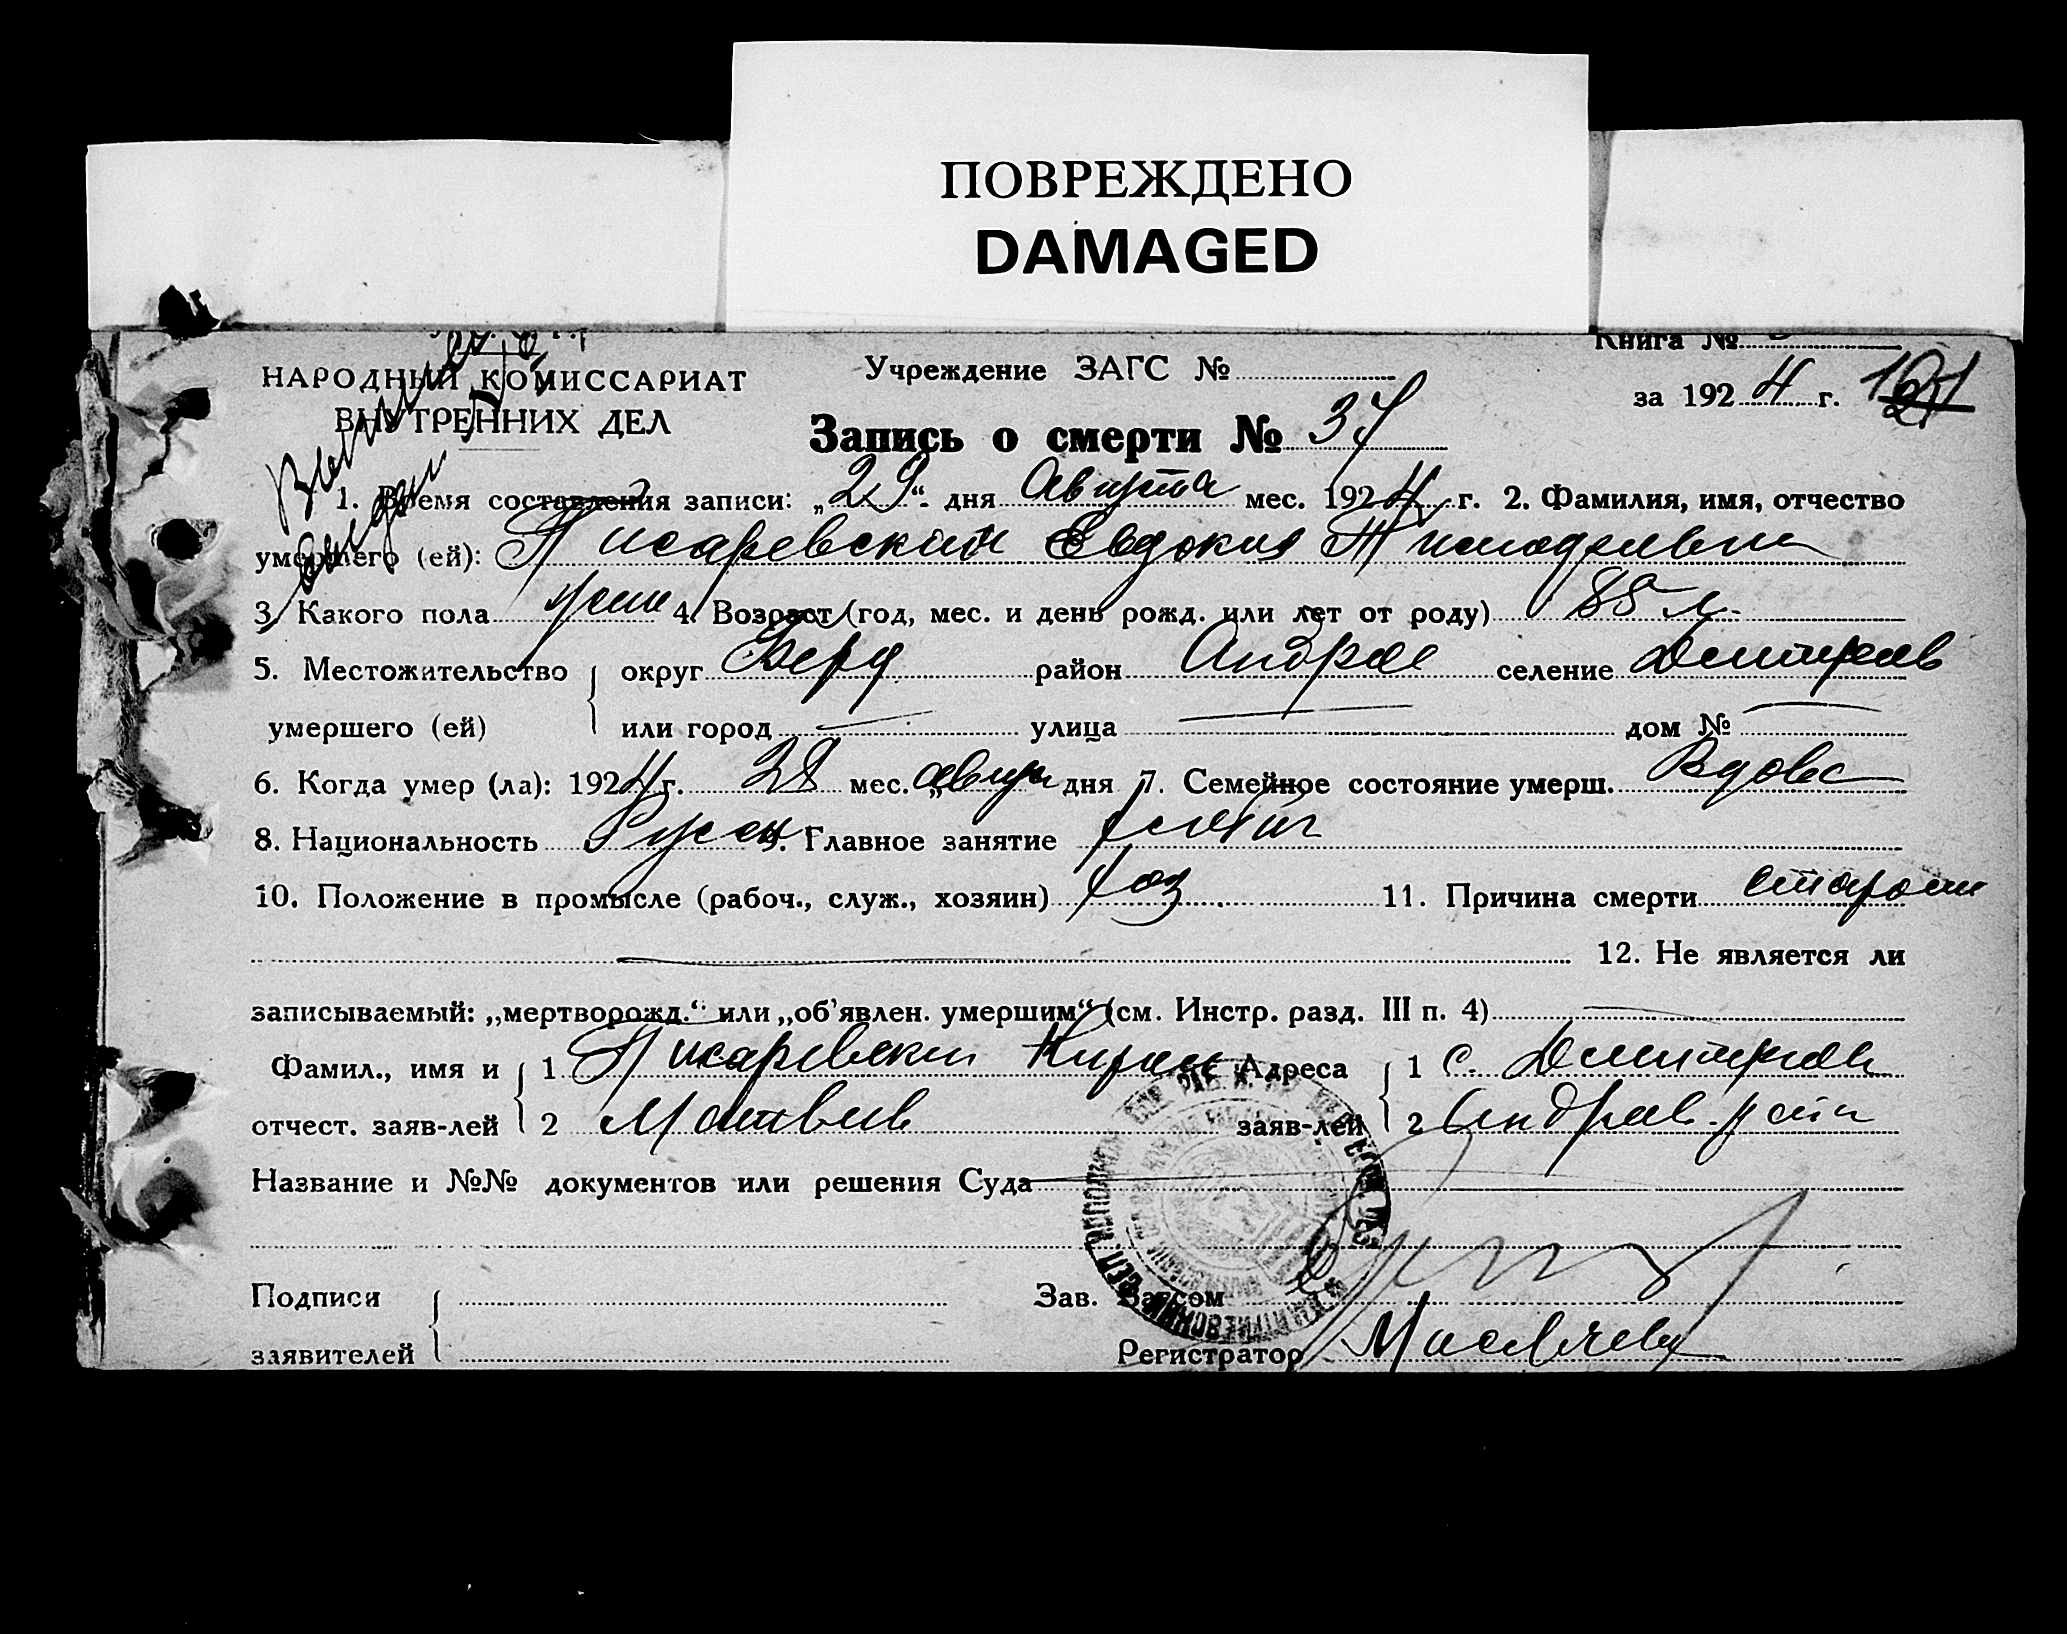 ПОВРЕЖДЕНО
DAMAGED
Книга №
НАРОДНЫЙ КОМИССАРИАТ
ВНУТРЕННИХ ДЕЛ
Учреждение ЗАГС №
за 1924 г.
Запись о смерти № 37
1. Время составления записи: „29“ дня Августа мес. 1924 г. 2. Фамилия, имя, отчество
умершего (ей): Писаревский Евдокия
3. Какого пола жен 4. Возраст (год, мес. и день рожд. или лет от роду) 85 л.
5. Местожительство округ Берд район Андрее селение Дмитриев
умершего (ей) или город улица дом №
6. Когда умер (ла): 1924 г. 28 мес. „ авгус дня 7. Семейное состояние умерш. Вдова
8. Национальность Русск 9. Главное занятие
10. Положение в промысле (рабоч., служ., хозяин) хоз 11. Причина смерти старость
12. Не является ли
записываемый: „мертворожд.“ или „об’явлен. умершим“ (см. Инстр. разд. III п. 4)
Фамил., имя и 1 Писаревский Адреса 1 с. Дмитриев
отчест. заяв-лей 2 Матвеев заяв-лей 2 Андреев. р
Название и №№ документов или решения Суда
Подписи Зав. Загсом
заявителей Регистратор